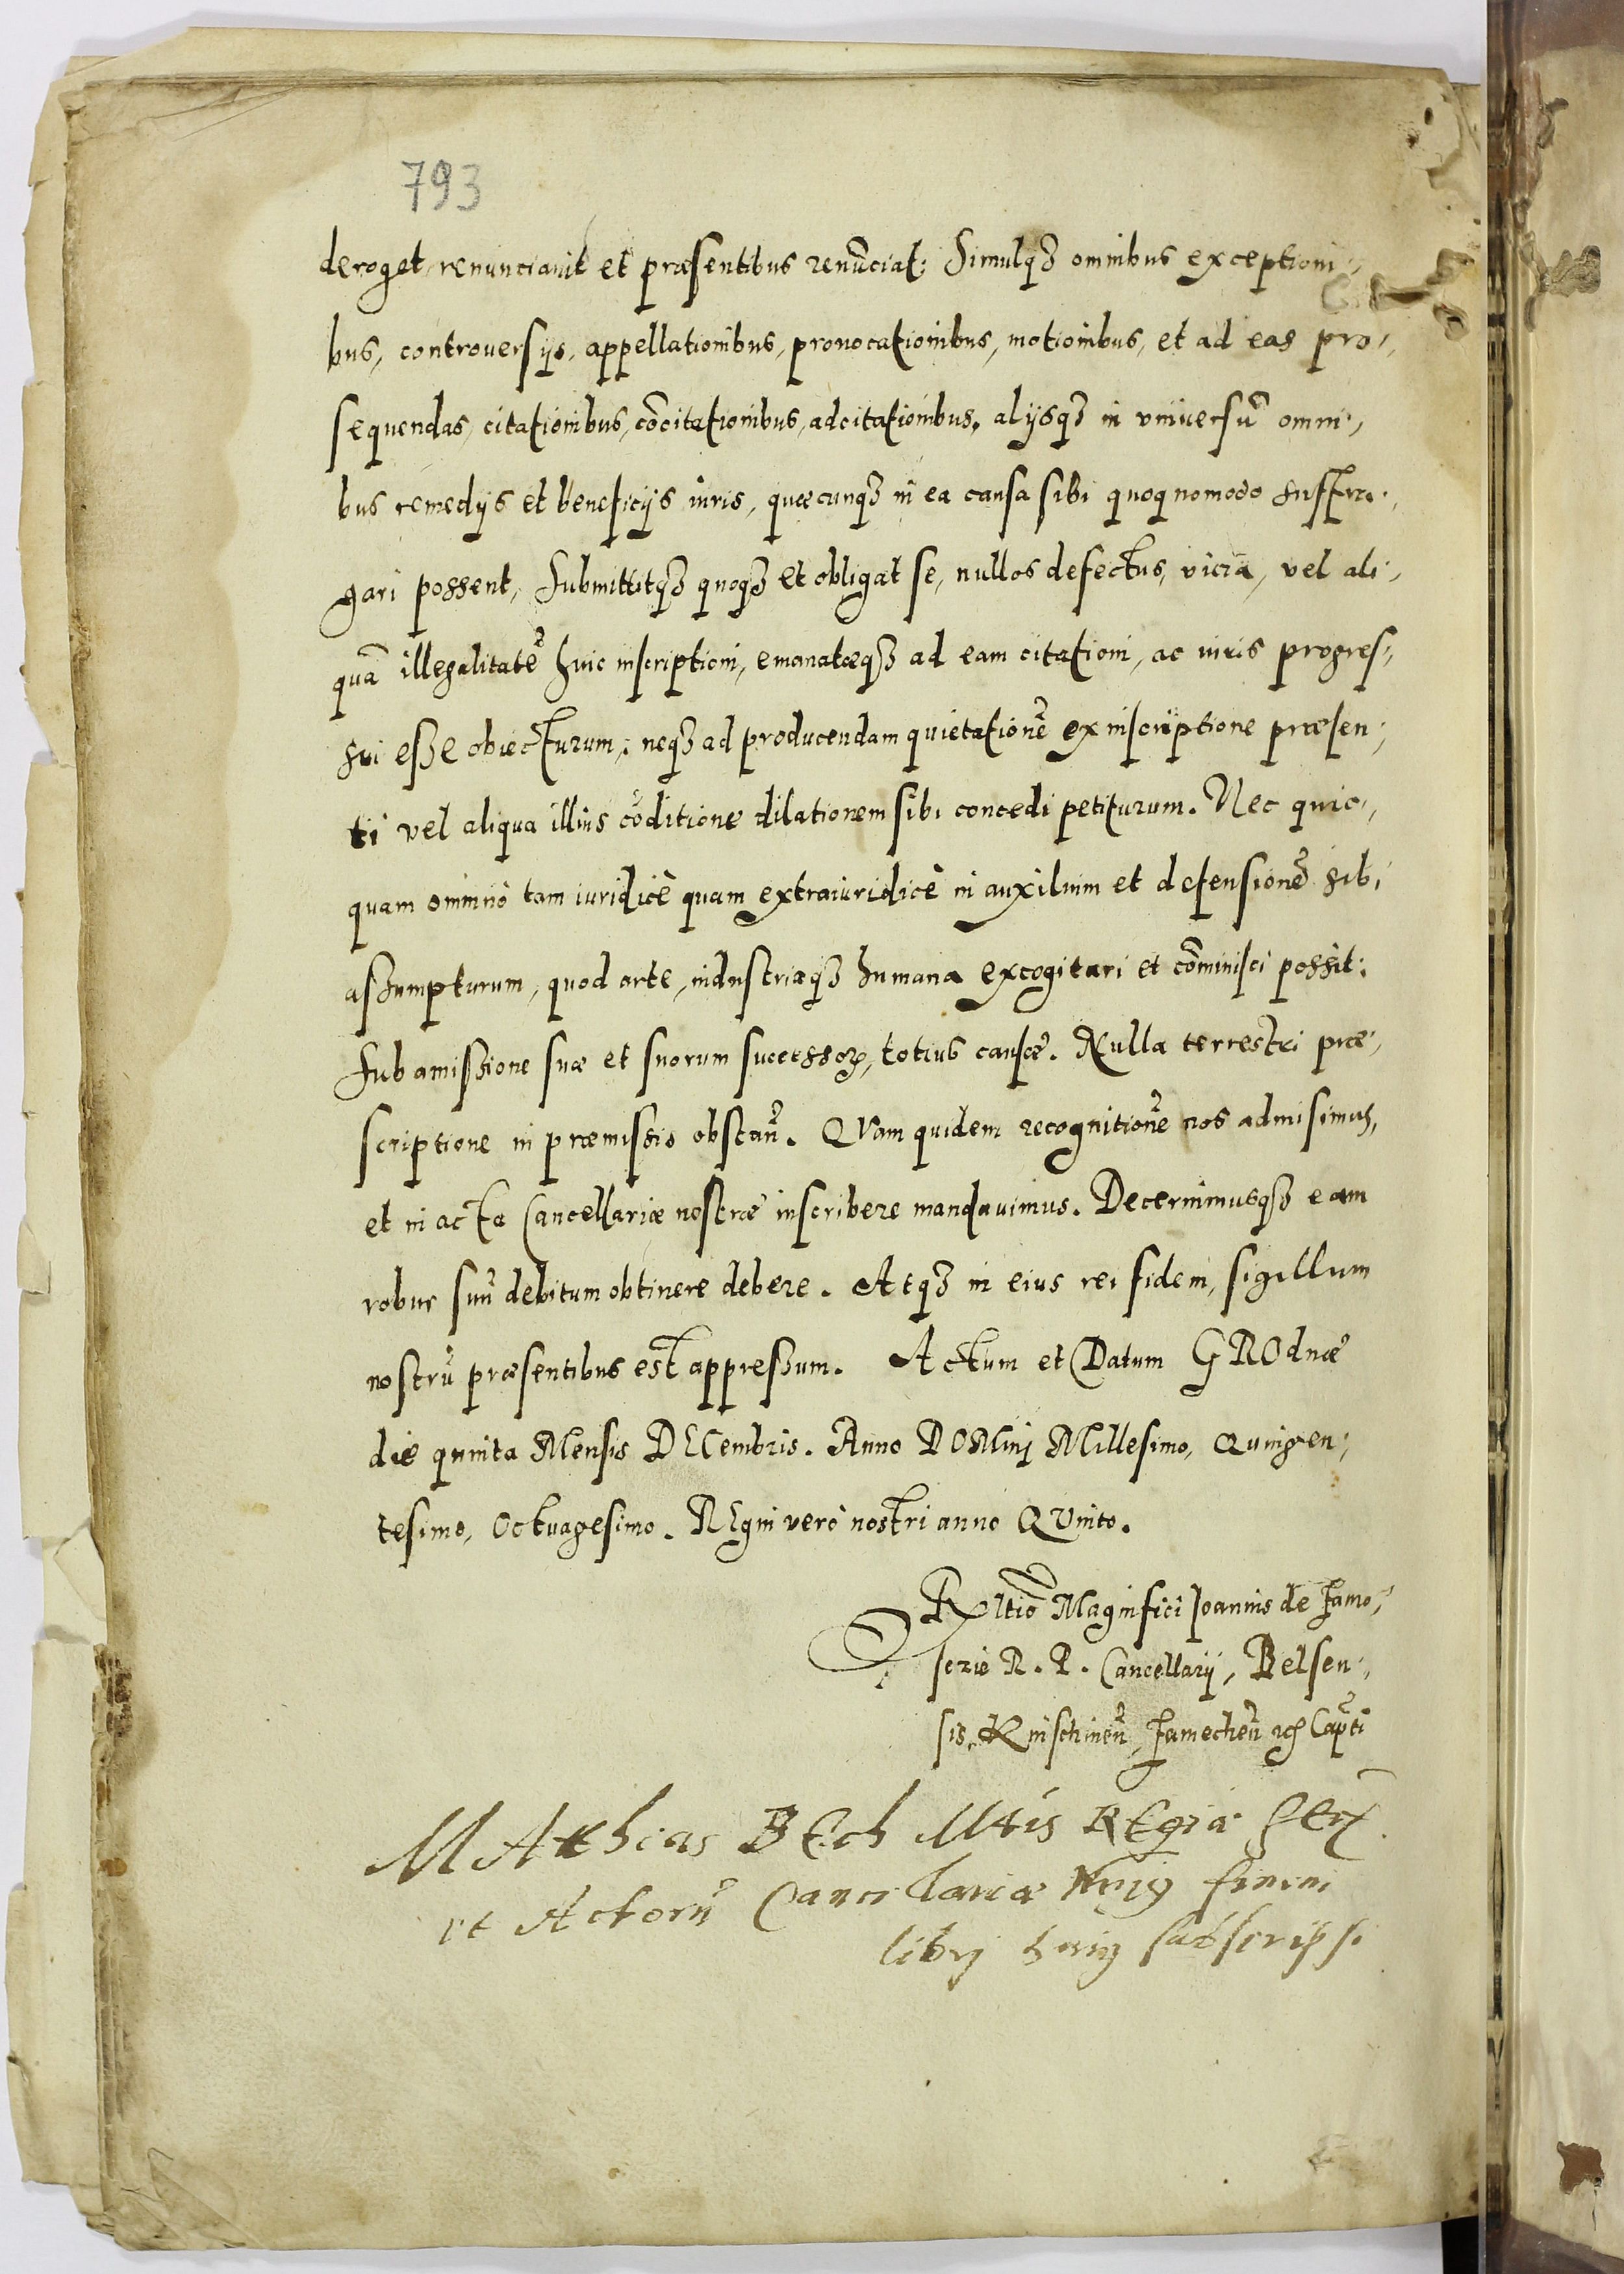 793
deroget renunciauit et præsentibus renũciat: Simulqʒ omnibus exceptioni,
bus, controuersijs, appellationibus, prouocationibus, motionibus, et ad eas pro,
sequendas, citationibus, cõcitationibus, adcitationibus, alijsqʒ in vniuersũ omni,
bus remedijs et beneficijs iuris, quæcunqʒ in ea causa sibi quoquomodo suffra,
gari possent, Submittitqʒ quoqʒ et obligat se, nullos defectus, vicia, vel ali,
quã illegalitatẽ huic inscriptioni, emanatæqʒ ad eam citationi, ac iuris progres,
sui esse obiecturum; neqʒ ad producendam quietationẽ ex inscriptione præsen,
ti vel aliqua illius cõditione dilationem sibi concedi petiturum. Nec quic,
quam omnino tam iuridicè quam extraiuridicè in auxilium et defensionẽ sibi
assumpturum, quod arte, industriaqʒ humana excogitari et cõminisci possit:
Sub amissione suæ et suorum successoꝝ, totius causæ. Nulla terrestri præ,
scriptione in præmissis obstan̄. QVam quidem recognitionẽ nos admisimus,
et in acta Cancellariæ nostræ inscribere mandauimus. Decernimusqʒ eam
robur suũ debitum obtinere debere. Atqʒ in eius rei fidem, sigillum
nostrũ præsentibus est appressum. Actum et Datum GROdnæ
die quinta Mensis DECembris. Anno DOMinj Millesimo, Quingen,
tesimo, Octuagesimo. REgni verò nostri anno QVinto.
Rltio Magnifici Joannis de Zamo,
sczie R. P. Cancellarij, Belsen,
sis, Knischineñ, Zamecheñ ꝛc̃ Capti
MAthias BEch Mtis REgiæ
et Actorũ Cancellariæ huiꝰ finem
librj huiꝰ subscripsi